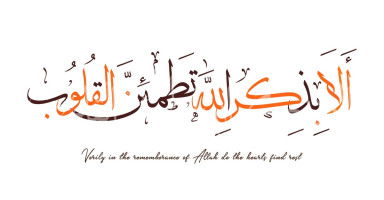 أَلَا بِذِكْرِ اللَّهِ تَطْمَئِنُّ الْقُلُوبُ
Verily in the remembrance of Allah do the hearts find rest